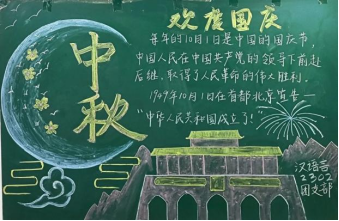 中秋
欢度国庆
每年的10月1日是中国的国庆节,
中国人民在中国共产党的领导下前赴
后继、取得了人民革命的伟大胜利.
1949年10月1日在首都北京宣告—
"中华人民共和国成立了!"
汉语言
2302
团支部